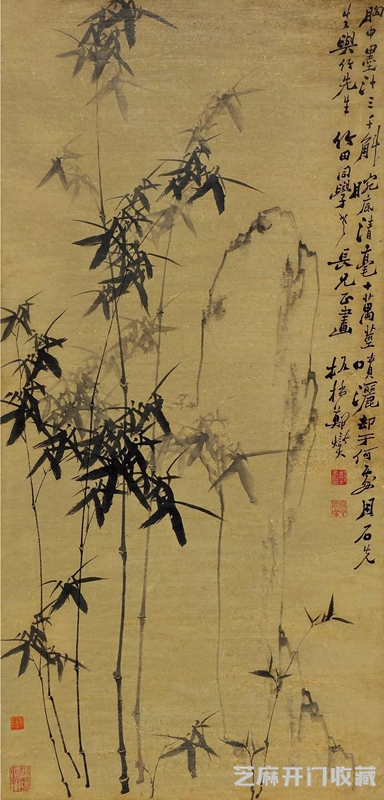 胸中墨汁三千斛腕底清毫十萬莖噴灑却于何處用石先
生與任先生 竹田同學老長兄正畫 板橋鄭燮
芝麻开门收藏